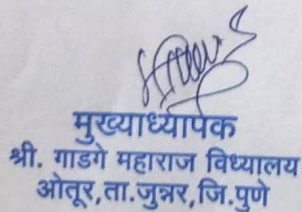 मुख्याध्यापक
श्री. गाडगे महाराज विध्यालय
ओतूर,ता.जुन्नर,जि.पुणे